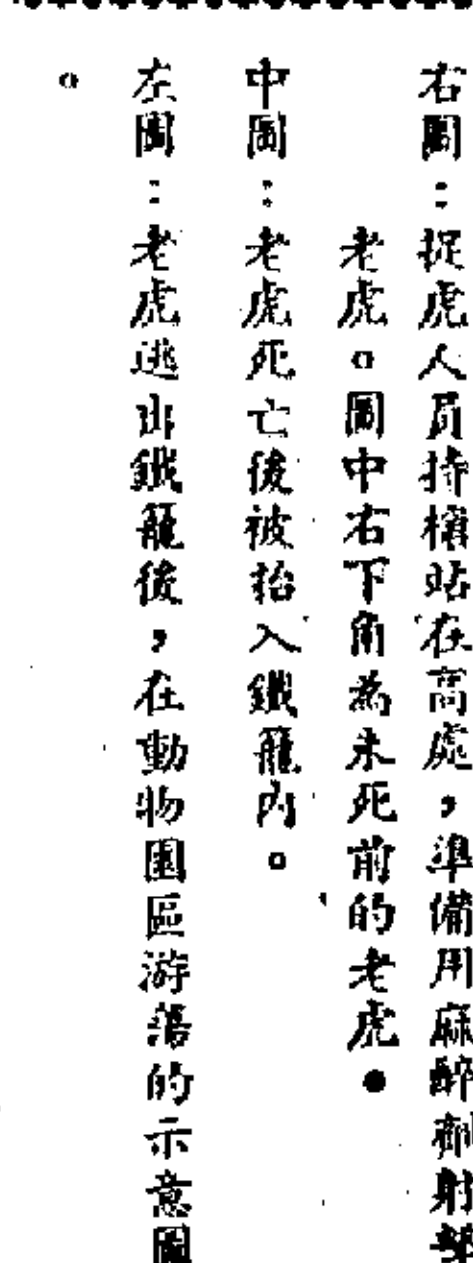 右圖：捉虎人員持槍站在高處，準備用麻醉劑射擊
老虎。圖中右下角為未死前的老虎。
中圖：老虎死亡後被抬入鐵籠內。
左圖：老虎逃出鐵籠後，在動物園區游蕩的示意圖
。